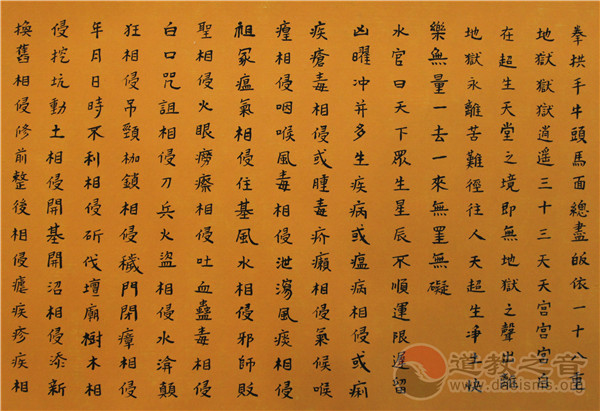 拳拱手牛頭馬面總盡皈依一十八重
地獄獄獄逍遥三十三天天宫宫宫自
在超生天堂之境即無地獄之聲出離
地獄永離苦難徑往人天超生净土快
樂無量一去一來無罣無礙
水官曰天下眾生星辰不順運限遲留
凶曜冲并多生疾病或瘟病相侵或痢
疾瘡毒相侵或腫毒疥癩相侵氣候喉
瘇相侵咽喉風毒相侵泄瀉風痰相侵
祖冢瘟氣相侵住基風水相侵邪師貶
聖相侵火眼癆瘵相侵吐血蠱毒相侵
白口咒詛相侵刀兵火盜相侵水渰顛
狂相侵吊頸枷鎖相侵穢門閉瘴相侵
年月日時不利相侵斫伐壇廟樹木相
侵挖坑動土相侵開基開沼相侵添新
換舊相侵修前整後相侵瘧疾疹疾相
道教之音
www.daoisms.org